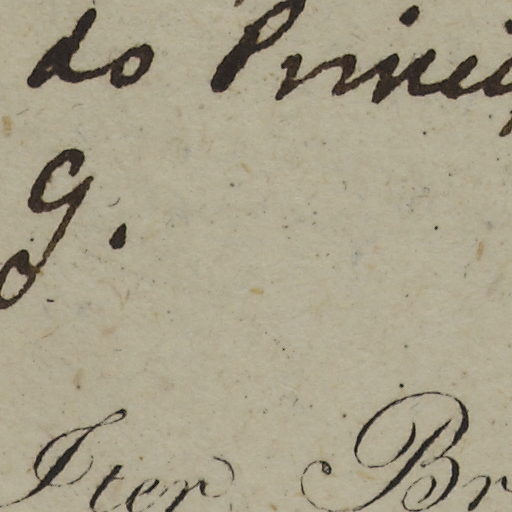 do Princi
g.
Iter Br